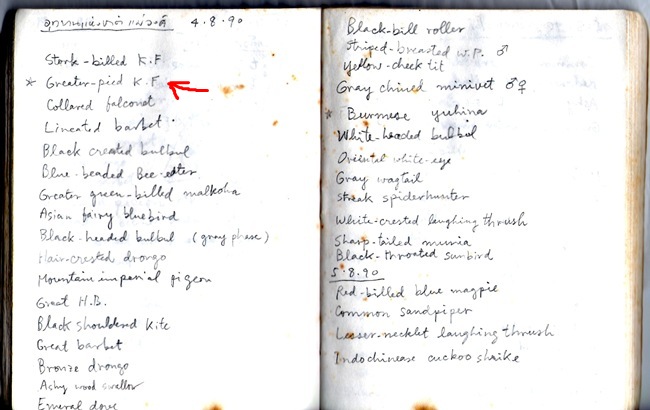 อุทยานแห่งชาติ 4.8.90
Stork-billed K.F
* Greater-pied K.F
Collared falconet
Lineated barbet
Black crested bulbul
Blue-beaded Bee-eater
Greater green-billed malkoha
Asian fairy bluebird
Black-headed bulbul (gray phase)
Hair-crested drongo
Mountain imperial pigeon
Great H.B.
Black shouldered Kite
Great barbet
Bronze drongo
Ashy wood swallow
Emeral dove
Black-bill roller
Striped-breasted W.P. ♂
Yellow-cheek tit
Gray chined minivet ♂♀
* Burmese yuhina
White-headed bulbul
Oriental white-eye
Gray wagtail
Streak spiderhunter
White-crested laughing thrush
Sharp-tailed munia
Black-throated sunbird
5.8.90
Red-billed blue magpie
Common sandpiper
Lesser-necklet laughing thrush
Indochinease cuckoo shrike